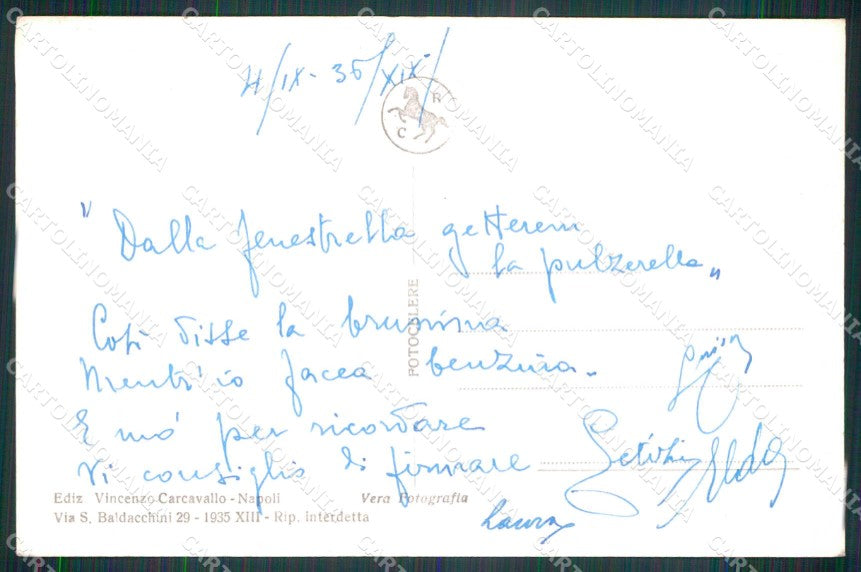 4/IX - 35/XIX/
R
C
"Dalla fenestrella getterem
la pulzerella"
Così disse la brunina
Mentr'io facea benzina.
E mò per ricordare
Vi consiglio di firmare
Aldo
Laura
POTOCELERE
Ediz Vincenzo Carcavallo - Napoli
Vera Fotografia
Via S. Baldacchini 29 - 1935 XIII - Rip. interdetta
CARTOLINOMANIA